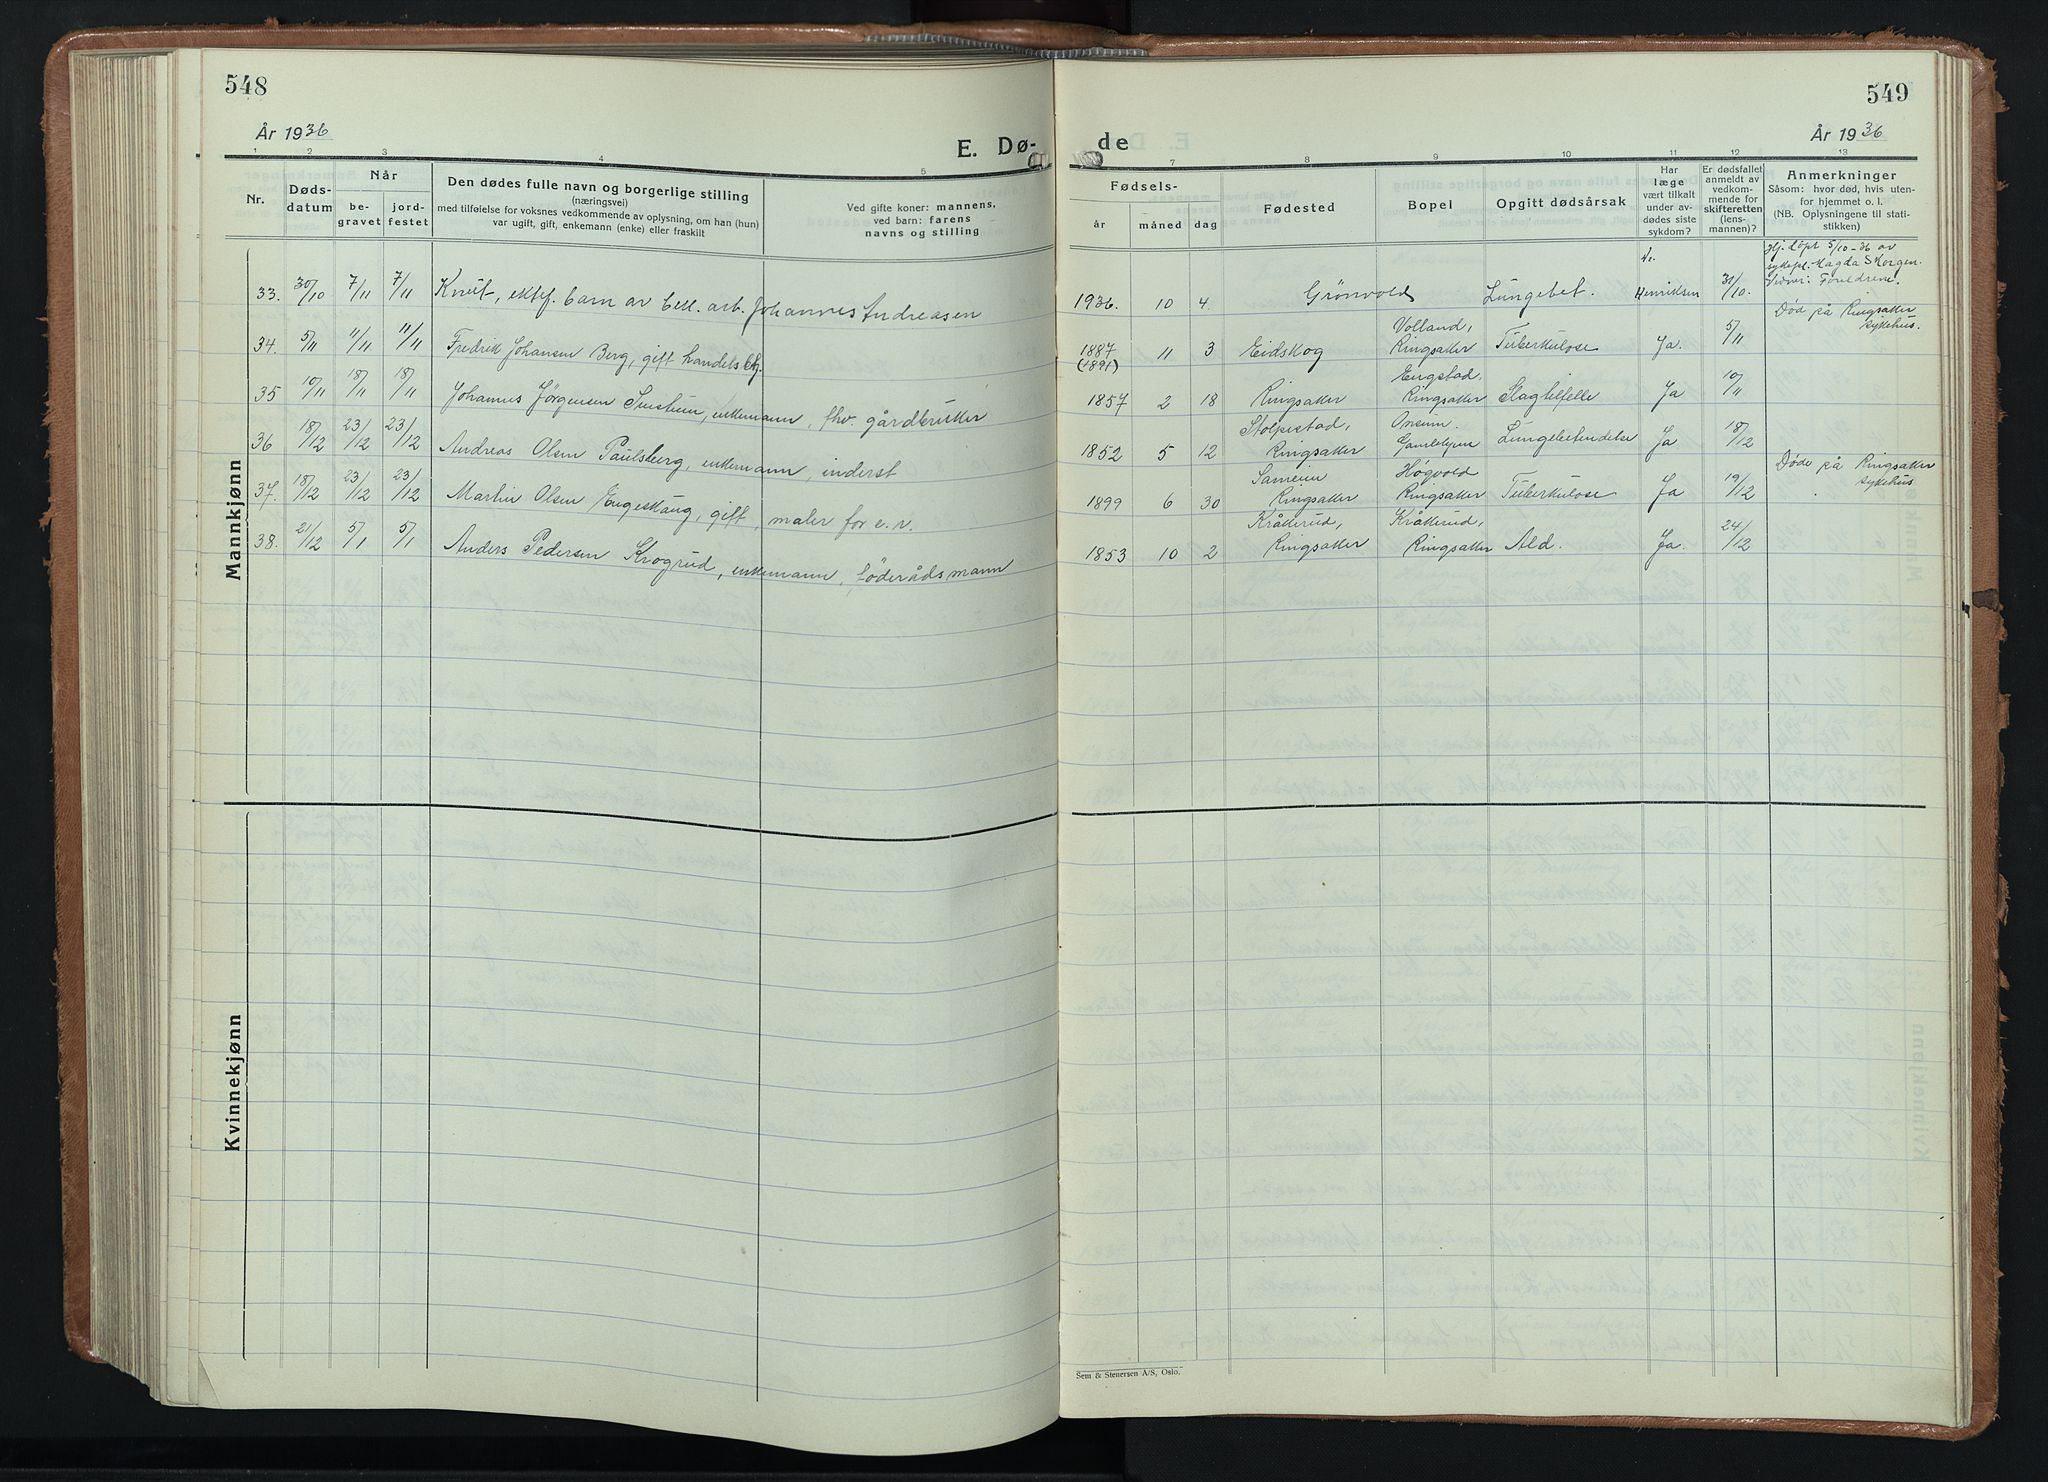 548
År 1936
E. Dø-
1 2 3 4 5
Nr.
Døds-
datum
Når
be-
gravet
jord-
festet
Den dødes fulle navn og borgerlige stilling
(næringsvei)
med tilføielse for voksnes vedkommende av oplysning, om han (hun)
var ugift, gift, enkemann (enke) eller fraskilt
Ved gifte koner: mannens,
ved barn: farens
navns og stilling
Mannkjønn
33. 30/10 7/11 7/11 Knut, ektef. barn av Johannes Andreasen
34. 5/11 11/11 11/11 Fredrik Johansen Berg, gift
35 10/11 18/11 18/11 Johannes Jørgensen enkemann, fhv. gårdbruker
36 18/12 23/12 23/12 Andreas Olsen Paulsberg, enkemann, inderst
37. 18/12 23/12 23/12 Martin Olsen Engeskaug, gift, maler for e. r.
38. 21/12 5/1 5/1 Anders Pedersen Krogrud, enkemann, føderådsmann
Kvinnekjønn
549
År 1936
de
7 8 9 10 11 12 13
Fødsels-
år måned dag
Fødested
Bopel
Opgitt dødsårsak
Har
læge
vært tilkalt
under av-
dødes siste
sykdom?
Er dødsfallet
anmeldt av
vedkom-
mende for
skifteretten
(lens-
mannen)?
Anmerkninger
Såsom: hvor død, hvis uten-
for hjemmet o. l.
(NB. Oplysningene til stati-
stikken)
Hj. døpt 5/10-36 av
sykepl. Magda S
Foreldrene.
1936. 10 4 Grönvold Lungebet. Henriksen 31/10.
Død på Ringsaker
sykehus.
Volland,
1887 11 3 Eidskog Ringsaker Tuberkulose Ja. 5/11
(1891)
Engstad,
1857 2 18 Ringsaker Ringsaker Slagtilfelle Ja 10/11
Stolpestad,
1852 5 12 Ringsaker Lungebetendelse Ja 18/12
Døde på Ringsaker
sykehus
Høgvold
1899 6 30 Ringsaker Ringsaker Tuberkulose Ja 19/12
Kråkerud, Kråkerud,
1853 10 2 Ringsaker Ringsaker Ald. Ja. 24/12
Sem & Stenersen A/S, Oslo.